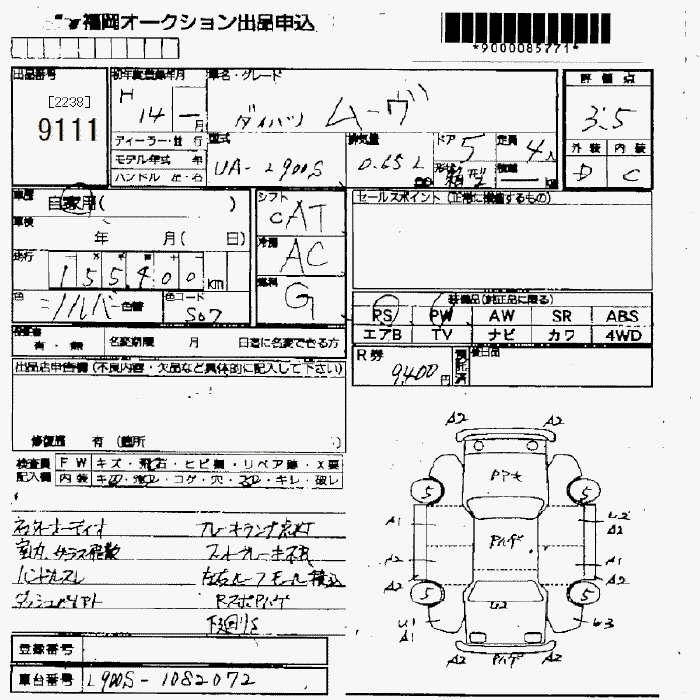 福岡オークション出品申込
*9000085771*
出品番号
[2238]
9111
初年度登録年月
H 14 - 月
車名・グレード
ダイハツ ムーヴ
評価点
3.5
外装 内装
D C
ディーラー・並 行
モデル年式 年
ハンドル 左・右
型式
UA-L900S
排気量
0.65L
ドア
5
形状
定員
4人
積載
車歴
自家用( )
車検
年 月( 日)
走行
155,400 km
色
シルバー 色替
色コード
S07
シフト
CAT
冷房
AC
燃料
G
セールスポイント (正常に機能するもの)
装備品(純正品に限る)
PS PW AW SR ABS
エアB TV ナビ カワ 4WD
保証書
有・無
名変期限 月 日迄に名変できる方
R券
9,400円
預託済
後日品
出品店申告欄 (不良内容・欠品など具体的に記入して下さい)
修復歴 有 (箇所 )
検査員記入欄
FW キズ・飛石・ヒビ割・リペア跡・X要
内装 キズ・汚れ・コゲ・穴・スレ・キレ・破レ
ハンドルスレ
下廻りS
A2 A2
5 5
A1
U2
A2
A2
A1
A2
A2
5 5
U2
U1
A1
U3
A2 A2
登録番号
車台番号
L900S-1082072